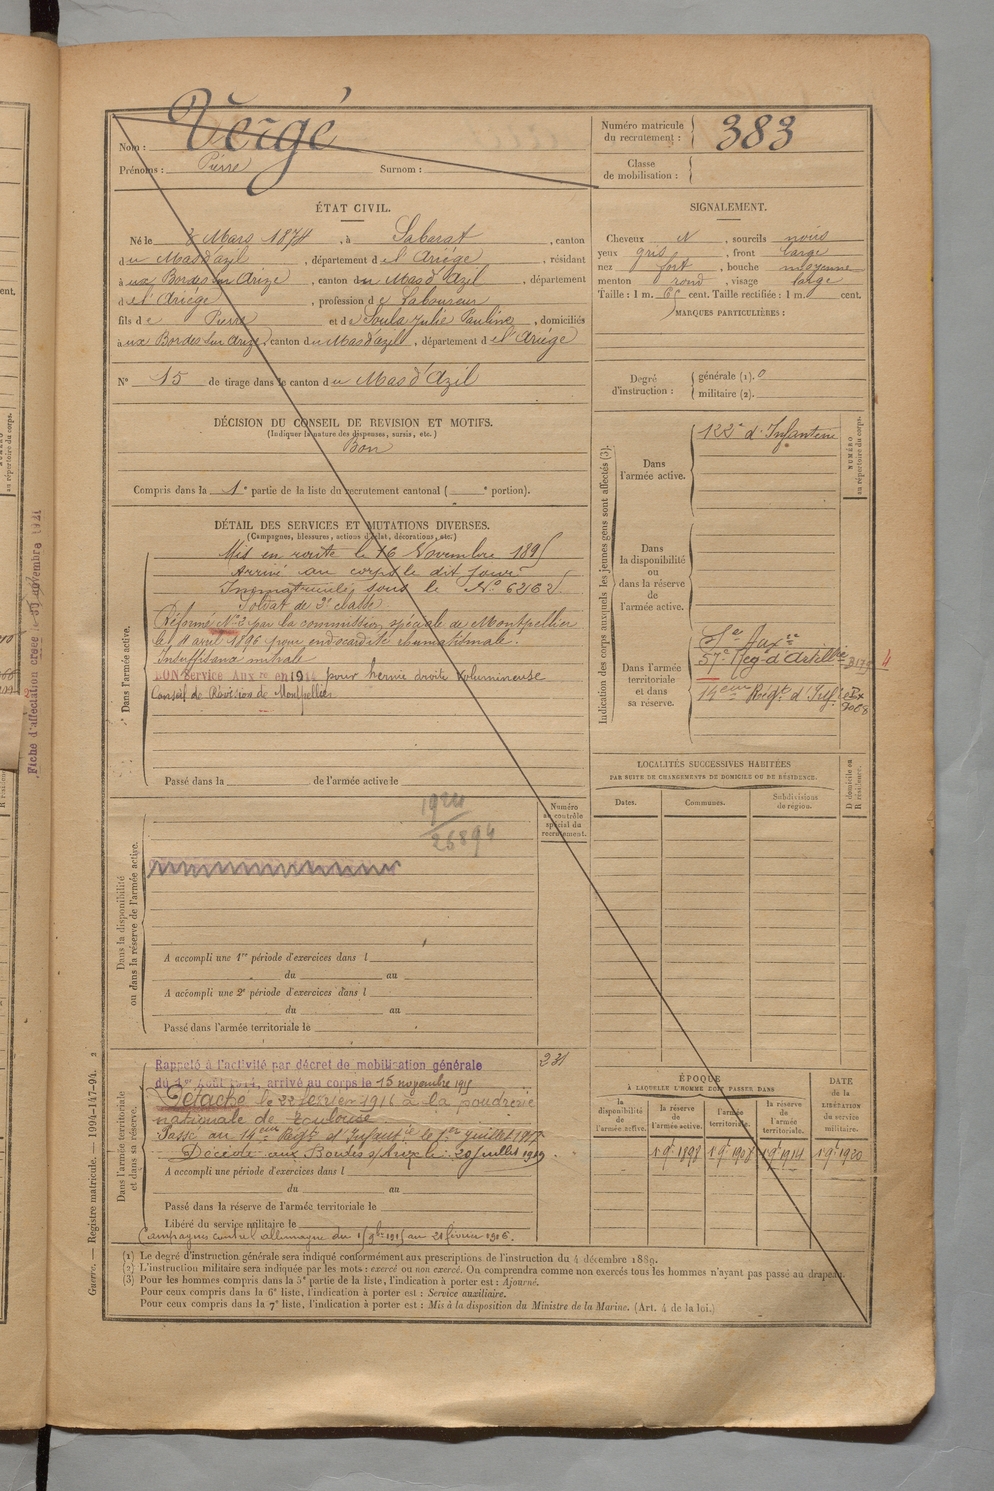 Vergé
Nom :
Prénoms : Pierre Surnom :
Numéro matricule du recrutement : 383
Classe de mobilisation :
ÉTAT CIVIL.
Né le Mars 1874, à Sabarat, canton
du Mas d'azil, département de l'Ariége, résidant
à ux Bordes sur Arize, canton du Mas d'Azil, département
de l'Ariége, profession de Laboureur
fils de Pierre et de Soula Julie Pauline, domiciliés
à ux Bordes sur Arize, canton du Mas d'azil, département de l'Ariége
N° 15 de tirage dans le canton du Mas d'Azil
SIGNALEMENT.
Cheveux N, sourcils noirs
yeux gris, front large
nez fort, bouche moyenne
menton rond, visage large
Taille : 1 m. 65 cent. Taille rectifiée : 1 m. cent.
MARQUES PARTICULIÈRES :
Degré d'instruction : générale (1). 0
militaire (2).
DÉCISION DU CONSEIL DE REVISION ET MOTIFS.
(Indiquer la nature des dispenses, sursis, etc.)
Bon
Compris dans la 1e partie de la liste du recrutement cantonal ( e portion).
DÉTAIL DES SERVICES ET MUTATIONS DIVERSES.
(Campagnes, blessures, actions d'éclat, décorations, etc.)
Dans l'armée active.
Mis en route le 16 Novembre 1895
Arrivé au corps le dit jour
Immatriculé sous le N° 6262
Soldat de 2e classe
Réformé N° 2 par la commission spéciale de Montpellier
le 11 avril 1896 pour endocardite rhumatismale.
Insuffisance mitrale
BON Service Auxre en 1914 pour hernie droite volumineuse
Conseil de Révision de Montpellier
Passé dans la de l'armée active le
Indication des corps auxquels les jeunes gens sont affectés (3).
NUMÉRO au répertoire du corps.
Dans l'armée active.
122e d'Infanterie
Dans la disponibilité ou dans la réserve de l'armée active.
Dans l'armée territoriale et dans sa réserve.
Sce Auxre
57e Reg d'Artillie
14eme Régt d'Inf.
LOCALITÉS SUCCESSIVES HABITÉES
PAR SUITE DE CHANGEMENTS DE DOMICILE OU DE RÉSIDENCE.
Dates. Communes. Subdivisions de région.
D domicile ou R résidence.
Dans la disponibilité ou dans la réserve de l'armée active.
Numéro au contrôle spécial du recrutement.
1924
26894
A accompli une 1re période d'exercices dans l
du au
A accompli une 2e période d'exercices dans l
du au
Passé dans l'armée territoriale le
Dans l'armée territoriale et dans sa réserve.
231
Rappelé à l'activité par décret de mobilisation générale
du 1er Août 1914, arrivé au corps le 15 novembre 1915
Détaché le 22 février 1916 à la poudrerie
nationale de Toulouse
Passé au 14eme Régt d'Infantie le 1er Juillet 1917
Décédé aux Bordes s/Arize le 20 juillet 1919
A accompli une période d'exercices dans l
du au
Passé dans la réserve de l'armée territoriale le
Libéré du service militaire le
Campagnes contre l'allemagne du 15 9bre 1915 au 21 février 1916.
ÉPOQUE
À LAQUELLE L'HOMME DOIT PASSER DANS
la disponibilité de l'armée active. la réserve de l'armée active. l'armée territoriale. la réserve de l'armée territoriale.
DATE de la LIBÉRATION du service militaire.
1 9e 1898 1 9e 1908 1 9e 1914 1 9e 1920
(1) Le degré d'instruction générale sera indiqué conformément aux prescriptions de l'instruction du 4 décembre 1889.
(2) L'instruction militaire sera indiquée par les mots : exercé ou non exercé. On comprendra comme non exercés tous les hommes n'ayant pas passé au drapeau.
(3) Pour les hommes compris dans la 5e partie de la liste, l'indication à porter est : Ajourné.
Pour ceux compris dans la 6e liste, l'indication à porter est : Service auxiliaire.
Pour ceux compris dans la 7e liste, l'indication à porter est : Mis à la disposition du Ministre de la Marine. (Art. 4 de la loi.)
Guerre. — Registre matricule. — 1994-147-94. 2